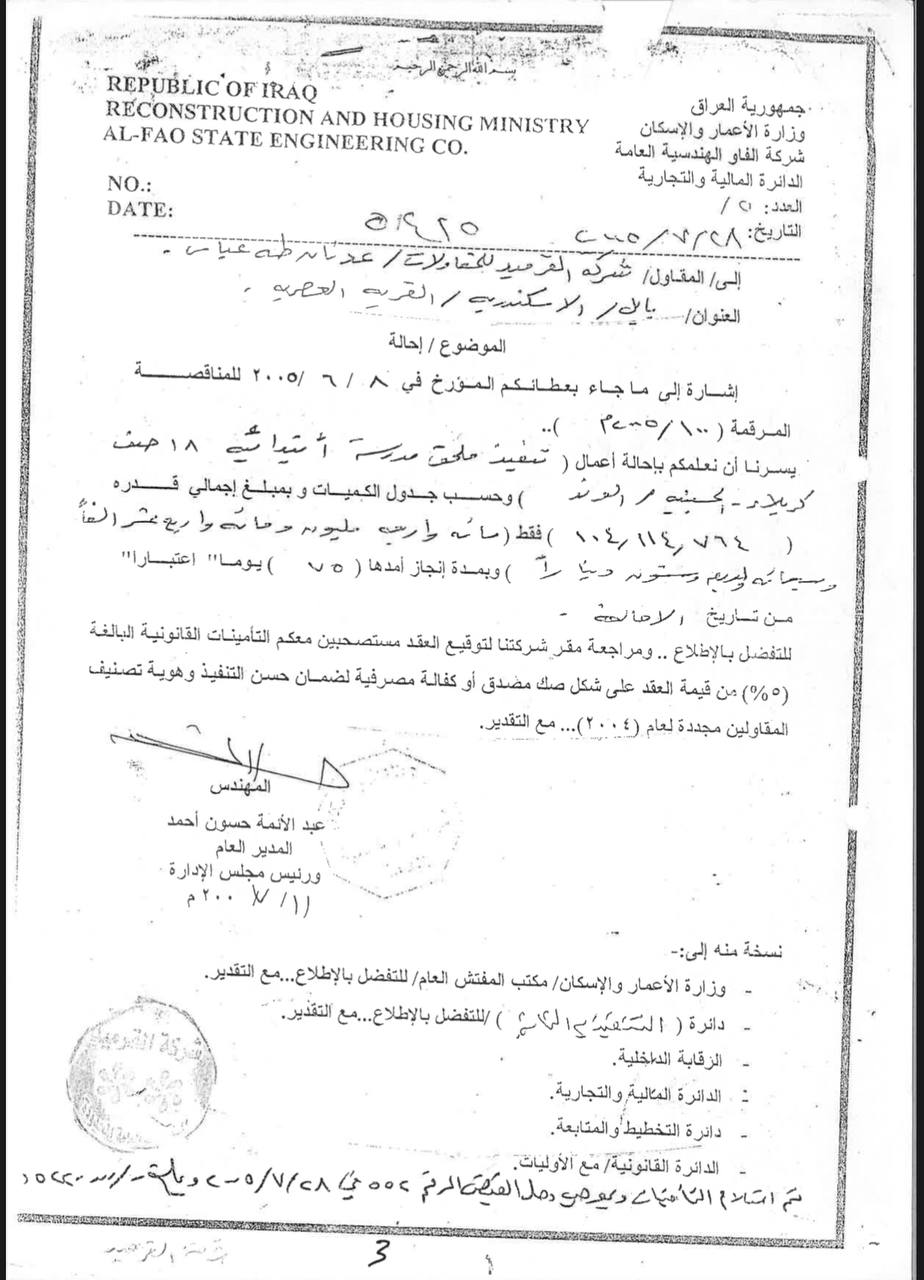 بسم الله الرحمن الرحيم
REPUBLIC OF IRAQ
RECONSTRUCTION AND HOUSING MINISTRY
AL-FAO STATE ENGINEERING CO.
NO.:
DATE:
جمهورية العراق
وزارة الأعمار والإسكان
شركة الفاو الهندسية العامة
الدائرة المالية والتجارية
العدد: ٢١ /
التاريخ: ٢٠٠٥/٧/٢٨
إلى/ المقاول/ شركة القرميد للمقاولات/ عدنان طه عباس .
العنوان/ بابل/ الاسكندرية/ القرية العصرية .
الموضوع / إحالة
إشارة إلى ماجاء بعطائكم المؤرخ في ٨ / ٦ / ٢٠٠٥ للمناقصة
المرقمة ( ١٠٠/ ٢٠٠٥م )..
يسرنا أن نعلمكم بإحالة أعمال ( تنفيذ ملحق مدرسة أبتدائية ١٨ صف
كربلاء - الحسينية / ) وحسب جدول الكميات و بمبلغ إجمالي قدره
( ١٠٤,١١٤,٧٦٤ ) فقط ( مائة واربعة مليون ومائة واربع عشر الفاً
وسبعمائة واربعة وستون ديناراً ) وبمدة إنجاز أمدها ( ٧٥ ) يوما" اعتبارا"
من تاريخ الاحالة -
للتفضل بالإطلاع .. ومراجعة مقر شركتنا لتوقيع العقد مستصحبين معكم التأمينات القانونية البالغة
(٥%) من قيمة العقد على شكل صك مصدق أو كفالة مصرفية لضمان حسن التنفيذ وهوية تصنيف
المقاولين مجددة لعام (٢٠٠٤)... مع التقدير.
المهندس
عبد الأئمة حسون أحمد
المدير العام
ورئيس مجلس الإدارة
نسخة منه إلى:-
- وزارة الأعمار والإسكان/ مكتب المفتش العام/ للتفضل بالإطلاع...مع التقدير.
- دائرة ( ) /للتفضل بالإطلاع...مع التقدير.
- الرقابة الداخلية.
- الدائرة المالية والتجارية.
- دائرة التخطيط والمتابعة.
- الدائرة القانونية/ مع الأوليات.
تم استلام التأمينات وبموجب وصل القبض المرقم ٥٥٢ في ٢٠٠٥/٧/٢٨
شركة القرميد
3